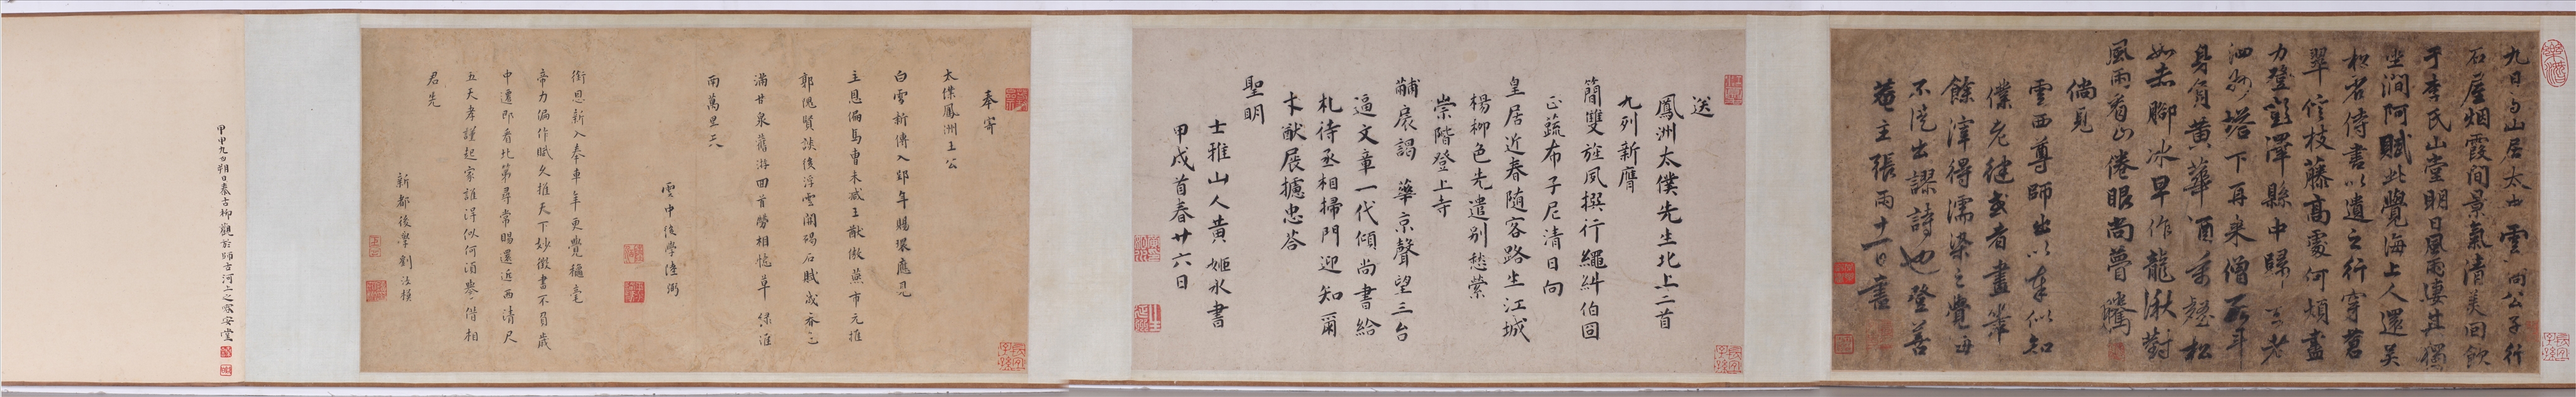 九日與山居太士雲間公子行
石屋烟霞間景氣清美回飲
于李氏山堂明日風雨淒然獨
坐澗阿賦此覺海上人還吴
松名侍書以遺之行穿茗
翠信枝藤高處何煩盡
力登彭澤縣中歸
泗州塔下再来僧百年
身負黄華酒
如赤脚冰早作龍湫對
風雨看山倦眼尚瞢騰
倘見
雲西尊師出以奉似知
僕老健或者畫葉
餘滓得濡染之覺毋
不忘出謬詩也登善
菴主張雨十一日書
送
鳳洲太僕先生北上二首
九列新膺
簡雙旌夙撰行繩糾伯冏
正蔬布子尼清日向
皇居近春隨客路生江城
楊柳色先遣别愁縈
崇階登上寺
黼扆謁華京聲望三台
逼文章一代傾尚書給
札待丞相掃門迎知爾
卞猷展攄忠荅
聖明
士雅山人黄姬水書
甲戌首春廿六日
奉寄
太僕鳳洲王公
白雪新傳入郢年賜環應見
主恩偏馬曹未减王猷傲燕市元推
郭隗賢談後浮雲開碣石賦成春
滿甘泉舊游回首勞相憶草緑淮
南萬里天
雲中後學陸弼
銜恩新入奉車年更覺
帝力偏作賦久推天下妙徵書不負歲
中遷郎看北第尋常賜還近西清尺
五天孝謹起家誰得似何須慶借相
君先
新都後學劉法
甲申九月朔日恭古柳觀於師古河上之寂安堂